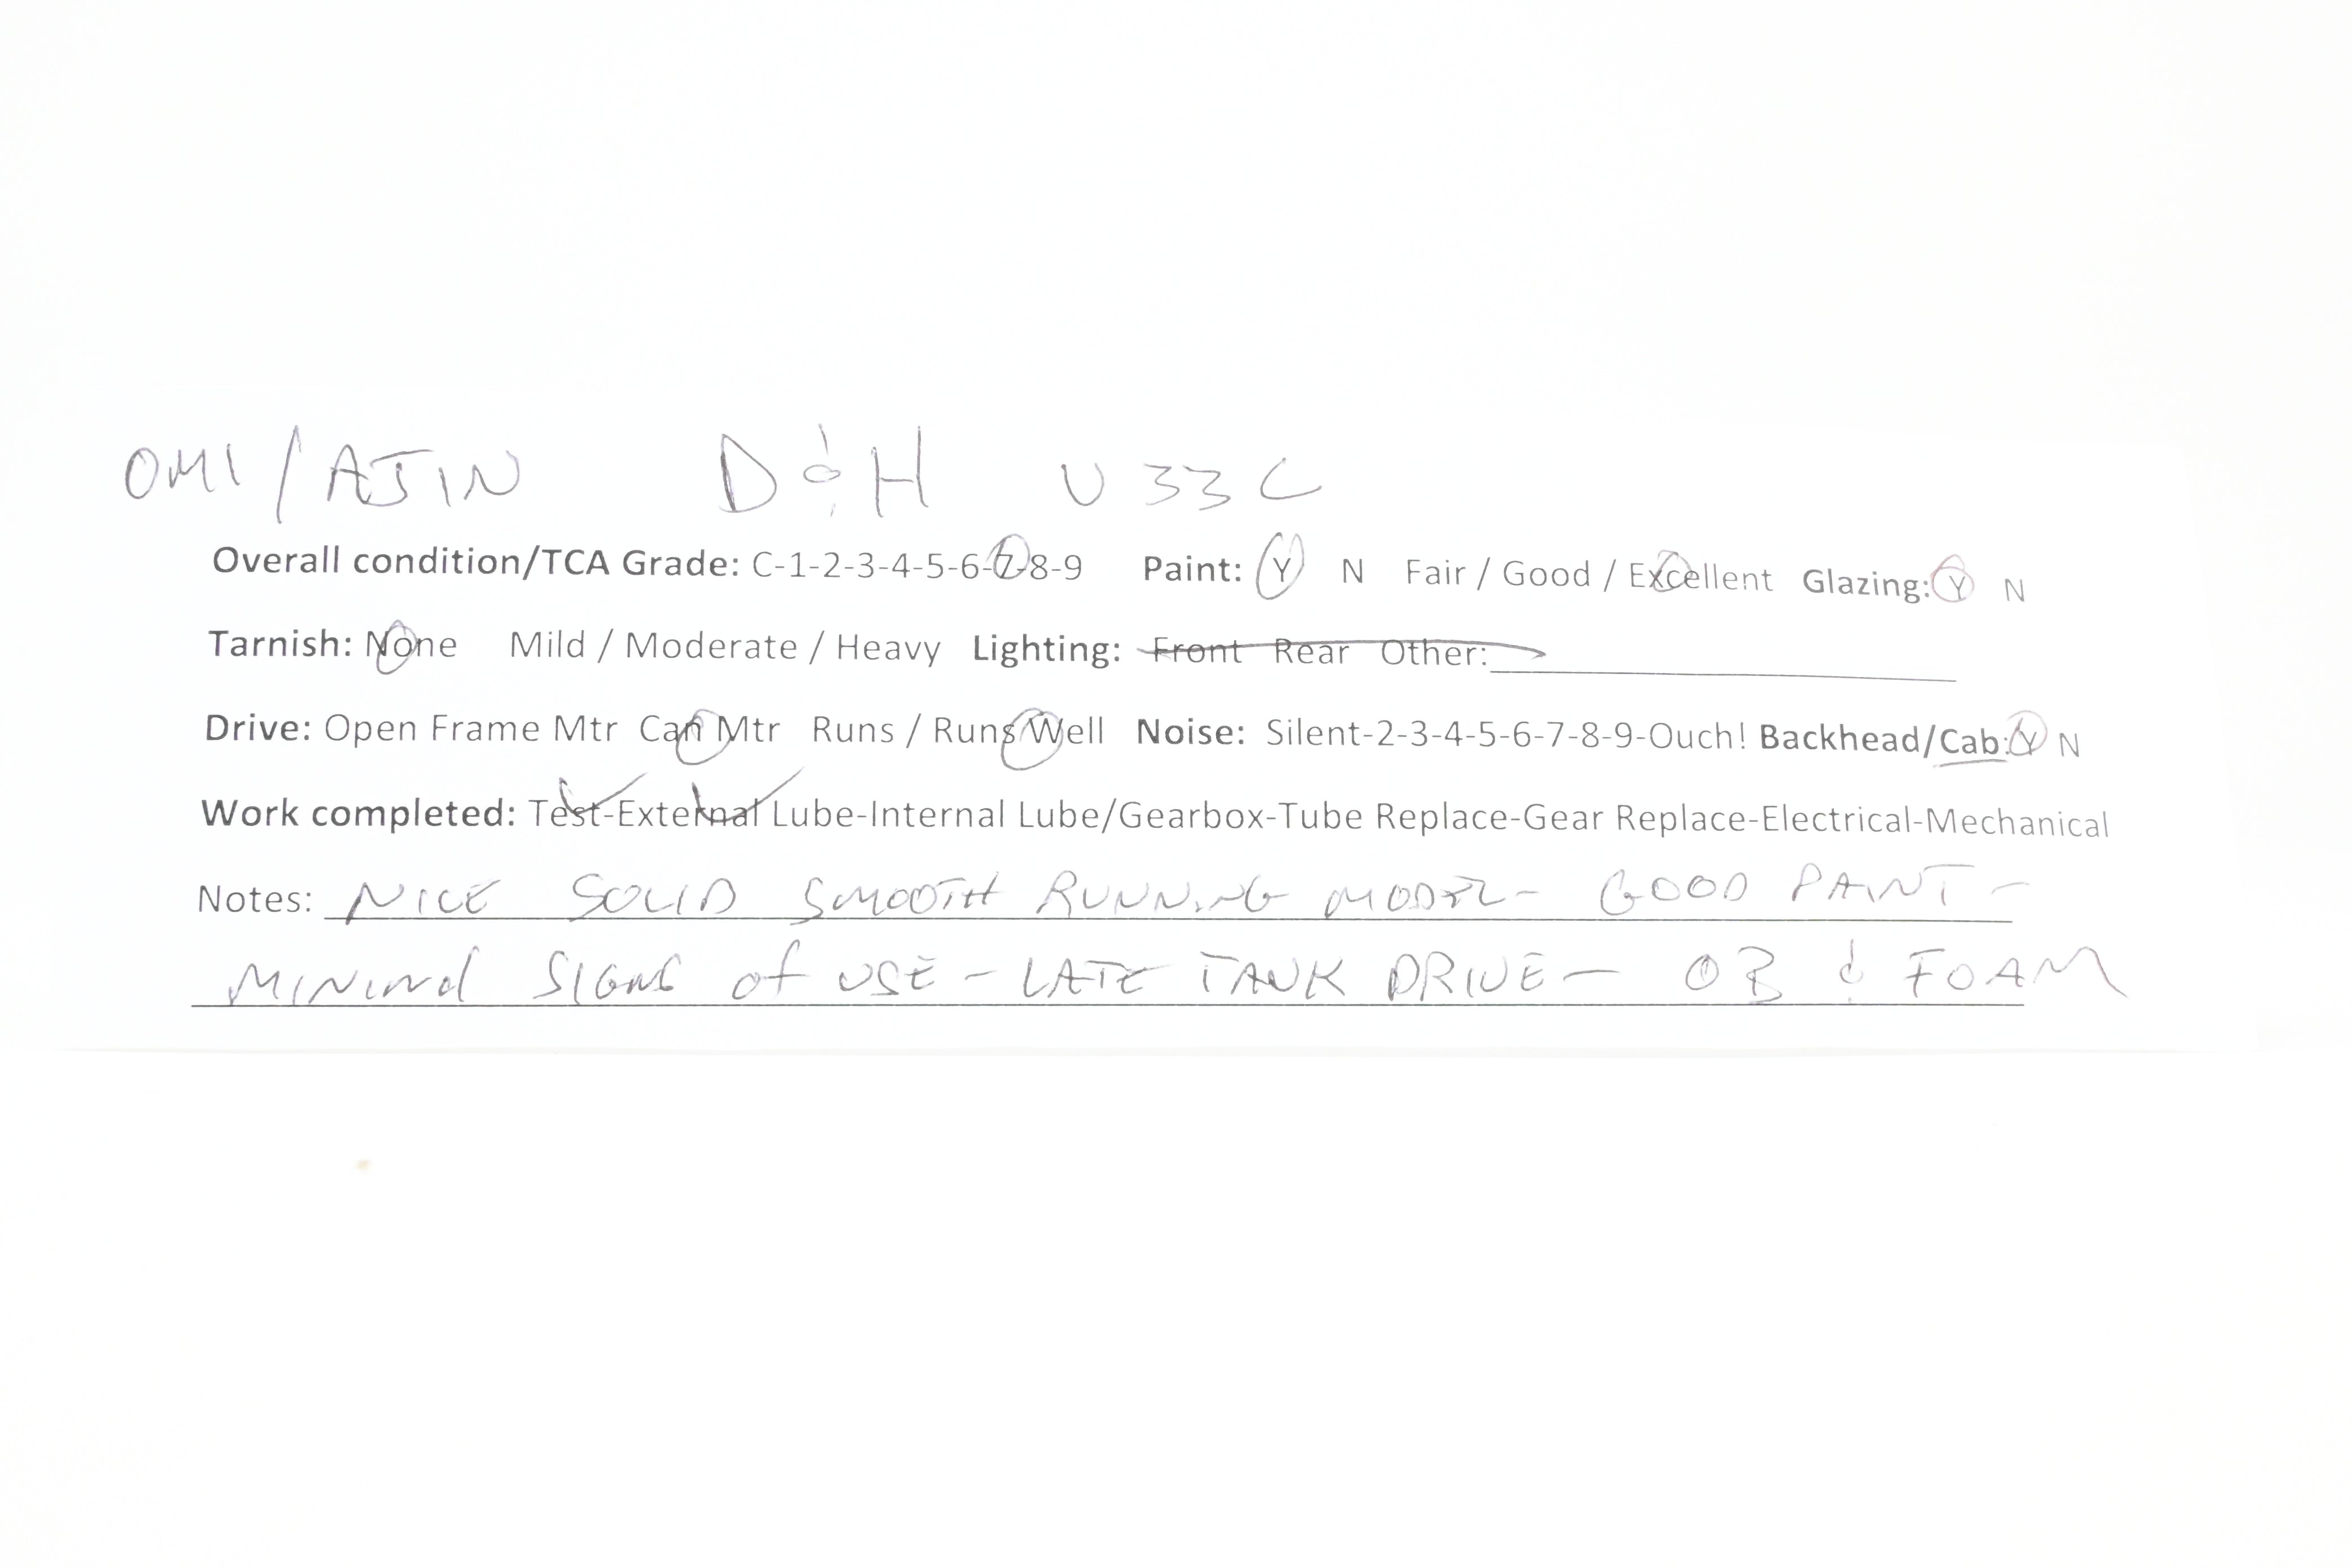 OMI/AJIN D&H U33C
Overall condition/TCA Grade: C-1-2-3-4-5-6-7-8-9 Paint: Y N Fair / Good / Excellent Glazing: Y N
Tarnish: None Mild / Moderate / Heavy Lighting: Front Rear Other:
Drive: Open Frame Mtr Can Mtr Runs / Runs Well Noise: Silent-2-3-4-5-6-7-8-9-Ouch! Backhead/Cab: Y N
Work completed: Test-External Lube-Internal Lube/Gearbox-Tube Replace-Gear Replace-Electrical-Mechanical
Notes: NICE SOLID SMOOTH RUNNING MODEL - GOOD PAINT -
MINIMAL SIGNS of USE - LATE TANK DRIVE - OB & FOAM